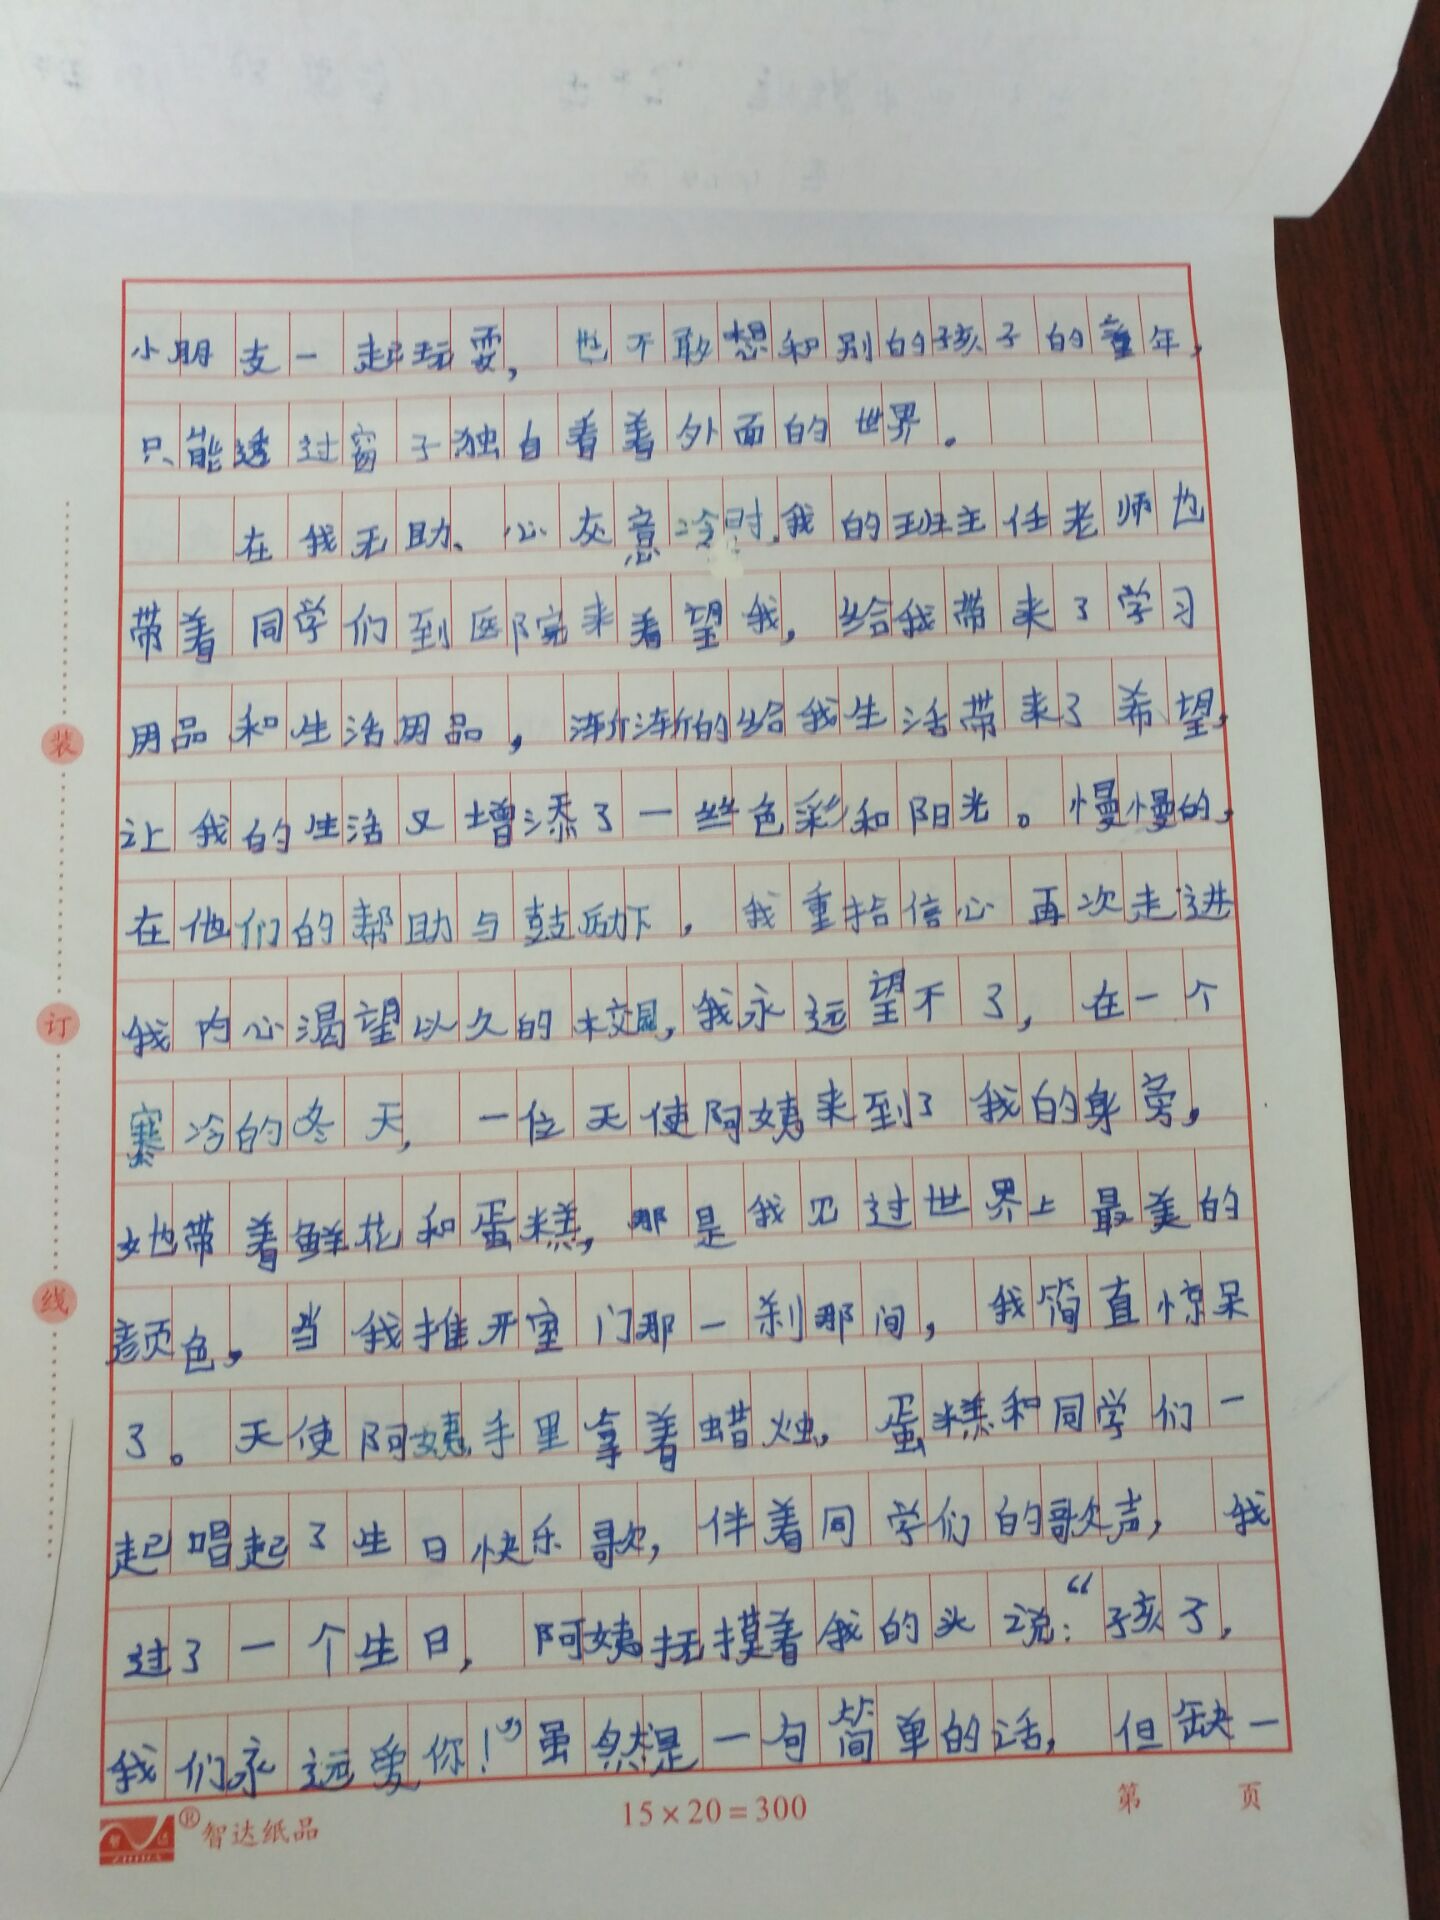 小朋支一起玩耍，也不敢想和别的孩子的童年，
只能透过窗子独自看着外面的世界。
在我无助、心灰意冷时，我的班主任老师也
带着同学们到医院来看望我，给我带来了学习
用品和生活用品，渐渐的给我生活带来了希望，
让我的生活又增添了一些色彩和阳光。慢慢的，
在他们的帮助与鼓励下，我重拾信心再次走进
我内心渴望以久的校园，我永远望不了，在一个
寒冷的冬天，一位天使阿姨来到了我的身旁，
她带着鲜花和蛋糕，那是我见过世界上最美的
颜色，当我推开室门那一刹那间，我简直惊呆
了。天使阿姨手里拿着蜡烛，蛋糕和同学们一
起唱起了生日快乐歌，伴着同学们的歌声，我
过了一个生日，阿姨抚摸着我的头说：“孩子，
我们永远爱你！”虽然是一句简单的话，但缺一
装
订
线
® 智达纸品
15×20=300
第 页